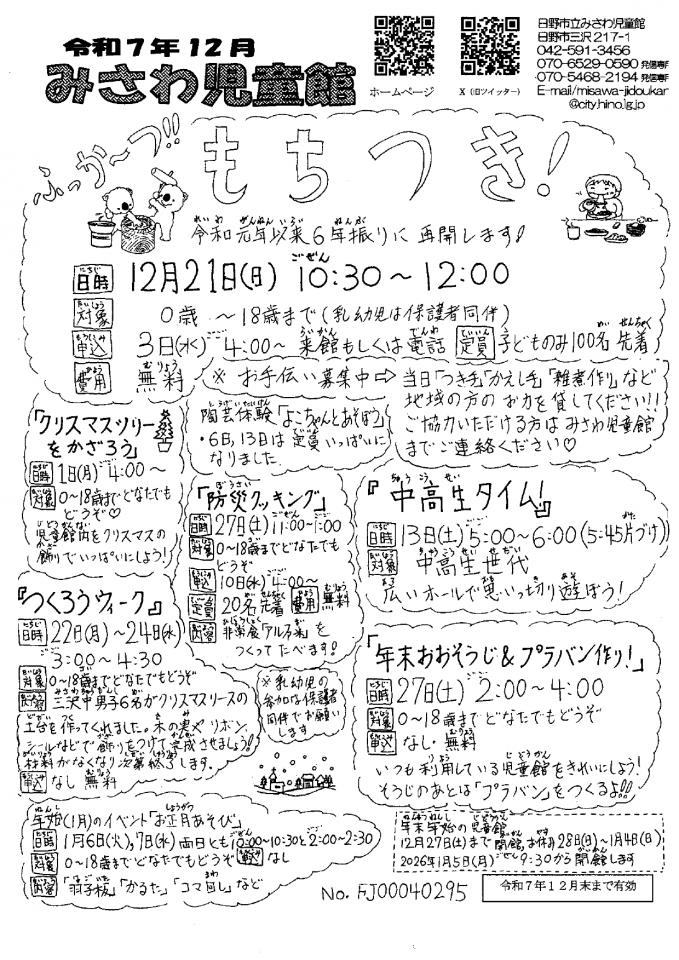 令和7年12月
みさわ児童館
ホームページ
X(旧ツイッター)
日野市立みさわ児童館
日野市三沢217-1
042-591-3456
070-6529-0590 発信専用
070-5468-2194 発信専用
E-mail/misawa-jidoukan
@city.hino.lg.jp
ふっか〜つ!!
もちつき!
令和元年以来6年振りに再開します!
日時 12月21日(日) 10:30〜12:00
対象 0歳 〜18歳まで(乳幼児は保護者同伴)
申込 3日(水) 4:00〜 来館もしくは電話 定員 子どものみ100名 先着
費用 無料
※お手伝い募集中⇨
当日「つき手」「かえし手」「雑煮作り」など
地域の方のお力を貸してください!!
ご協力いただける方はみさわ児童館
までご連絡ください♡
「クリスマスツリー
をかざろう」
日時 1日(月) 4:00〜
対象 0〜18歳までどなたでも
どうぞ♡
児童館内をクリスマスの
飾りでいっぱいにしよう!
陶芸体験「よこちゃんとあそぼう」
・6日,13日は定員いっぱいに
なりました.
「防災クッキング」
日時 27日(土) 11:00〜1:00
対象 0〜18歳までどなたでも
どうぞ
申込 10日(水) 4:00〜
定員 20名先着 費用 無料
内容 非常食「アルファ米」を
つくってたべます!
『中高生タイム!』
日時 13日(土) 5:00〜6:00 (5:45片づけ)
対象 中高生世代
広いホールで思いっ切り遊ぼう!
『つくろうウィーク』
日時 22日(月)〜24日(水)
3:00〜4:30
対象 0〜18歳までどなたでもどうぞ
内容 三沢中男子6名がクリスマスリースの
土台を作ってくれました。木の実やリボン,
シールなどで飾りをつけて完成させましょう!
材料がなくなり次第終了します.
申込 なし 無料
※乳幼児の
参加は保護者
同伴でお願い
します
「年末おおそうじ&プラバン作り!」
日時 27日(土) 2:00〜4:00
対象 0〜18歳までどなたでもどうぞ
申込 なし・無料
いつも利用している児童館をきれいにしよう!
そうじのあとは「プラバン」をつくるよ!!
年始(1月)のイベント「お正月あそび」
日時 1月6日(火),7日(水) 両日とも10:00〜10:30と2:00〜2:30
対象 0〜18歳までどなたでもどうぞ 申込 なし
内容 「羽子板」「かるた」「コマ回し」など
年末年始の児童館
12月27日(土)まで開館,お休み28日(日)〜1月4日(日)
2026年1月5日(月) 9:30から開館します
No. FJ00040295
令和7年12月末まで有効